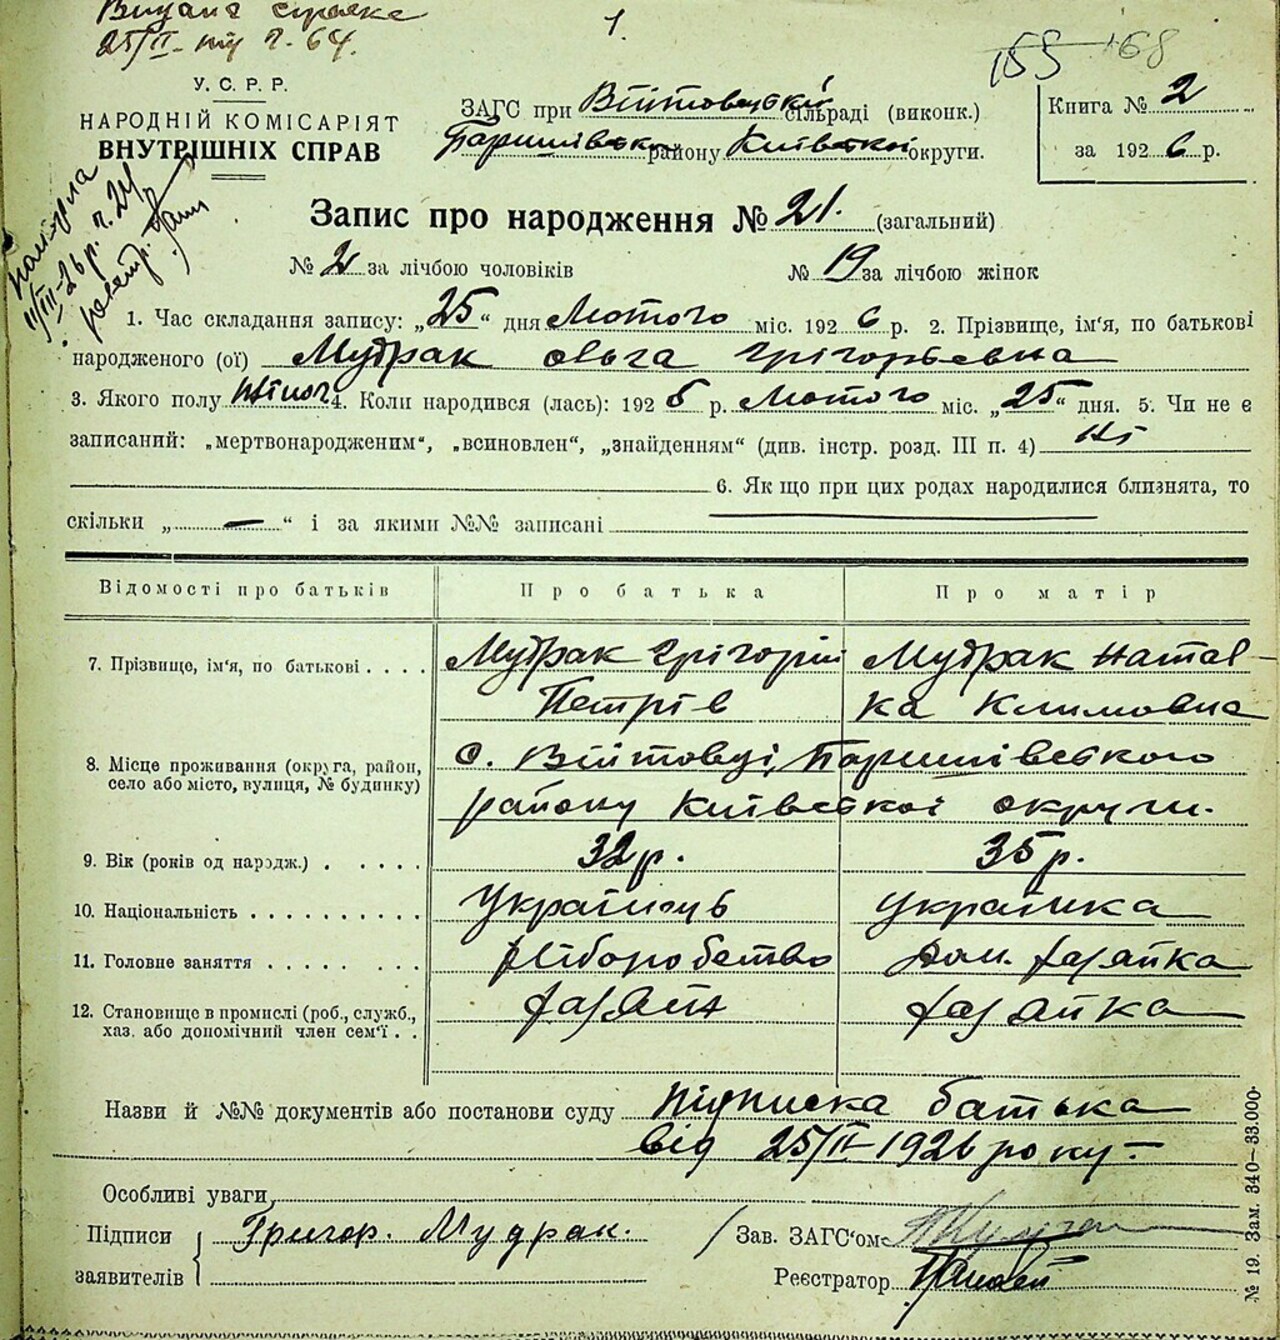 Видана справка
25/II- г. 64.
1.
155 168
У. С. Р. Р.
НАРОДНІЙ КОМІСАРІЯТ
ВНУТРІШНІХ СПРАВ
ЗАГС при Війтовецькій сільраді (виконк.)
Баришівськ району Київської округи.
Книга № 2
за 1926 р.
Запис про народження № 21. (загальний)
№ 2 за лічбою чоловіків
№ 19 за лічбою жінок
1. Час складання запису: „25“ дня Лютого міс. 1926 р. 2. Прізвище, ім'я, по батькові
народженого (ої) Мудрак Ольга Грігорьевна
3. Якого полу жіноч 4. Коли народився (лась): 1926 р. Лютого міс. „25“ дня. 5. Чи не є
записаний: „мертвонародженим“, „всиновлен“, „знайденням“ (див. інстр. розд. III п. 4) Ні
6. Як що при цих родах народилися близнята, то
скільки „—“ і за якими №№ записані
Відомості про батьків Про батька Про матір
7. Прізвище, ім'я, по батькові . . . . Мудрак Грігорій Мудрак Натал-
Петрів ка Климовна
8. Місце проживання (округа, район, с. Війтовці, Баришівського
село або місто, вулиця, № будинку) району Київської округи.
9. Вік (років од народж.) . . . . . 32 р. 35 р.
10. Національність . . . . . . . . . . Українець Українка
11. Головне заняття . . . . . . . . хліборобство Дом. хазяйка
12. Становище в промислі (роб., служб., хазяїн хазяйка
хаз. або допомічний член сем'ї . .
Назви й №№ документів або постанови суду підписка батька
від 25/II-1926 року.
Особливі уваги
Підписи Григор. Мудрак. Зав. ЗАГС'ом
заявителів Реєстратор
№ 19. Зам. 340—33.000.